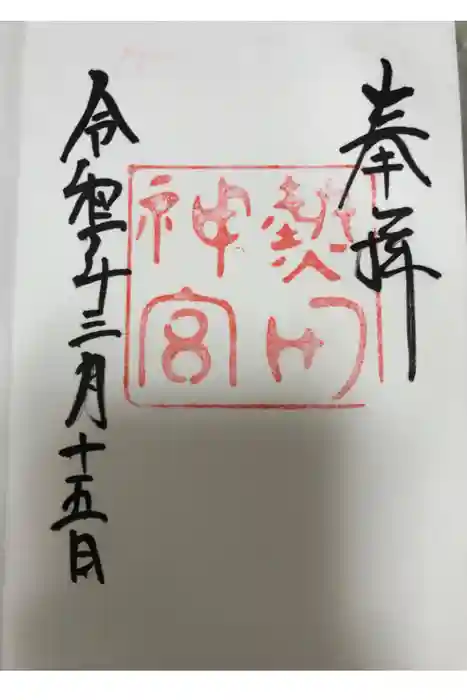 奉拝
熱田
神宮
令和年三月十五日